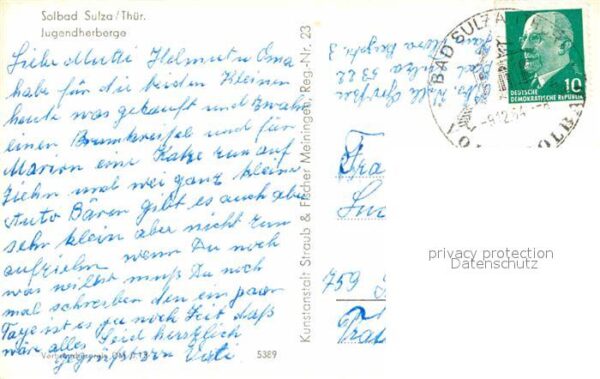 Solbad Sulza/Thür.
Jugendherberge
Liebe Mutti Helmut u Oma
habe für die beiden Kleinen
heute was gekauft und zwar
einen Brummkreisel und für
Marion eine Katze zum auf
ziehn und wei ganz kleine
Auto Bären gibt es auch aber
sehr klein aber nicht zum
aufziehn wenn Du noch
was willst muß Du noch
mal schreiben den ein paar
Tage ist es ja noch Zeit daß
wäre alles Seid herzlich
gegrüßt von
5389
Kunstanstalt Straub & Fischer Meiningen, Reg.-Nr. 23
Bad Sulza 5322
BAD SULZA
DEUTSCHE
DEMOKRATISCHE REPUBLIK
10
privacy protection
Datenschutz
759